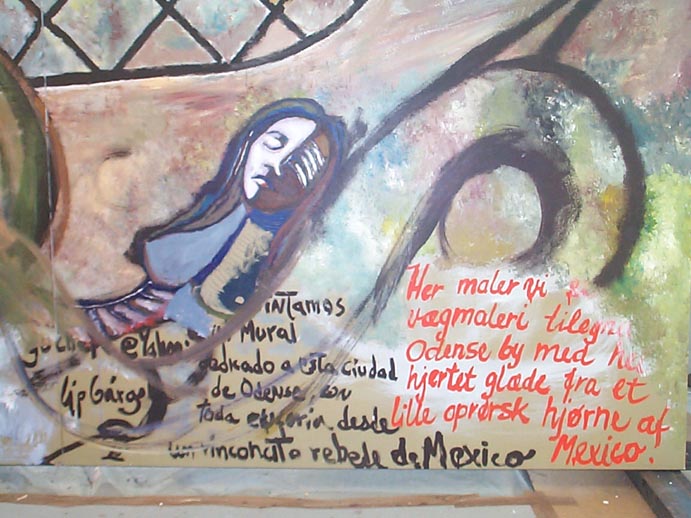 intamos
Mural
dedicado a esta ciudad
de Odense, con
toda euforia desde
un rinconcito rebelde de Mexico
Her maler vi
vægmaleri
Odense by med
hjertet glæde fra et
lille oprørsk hjørne af
Mexico.